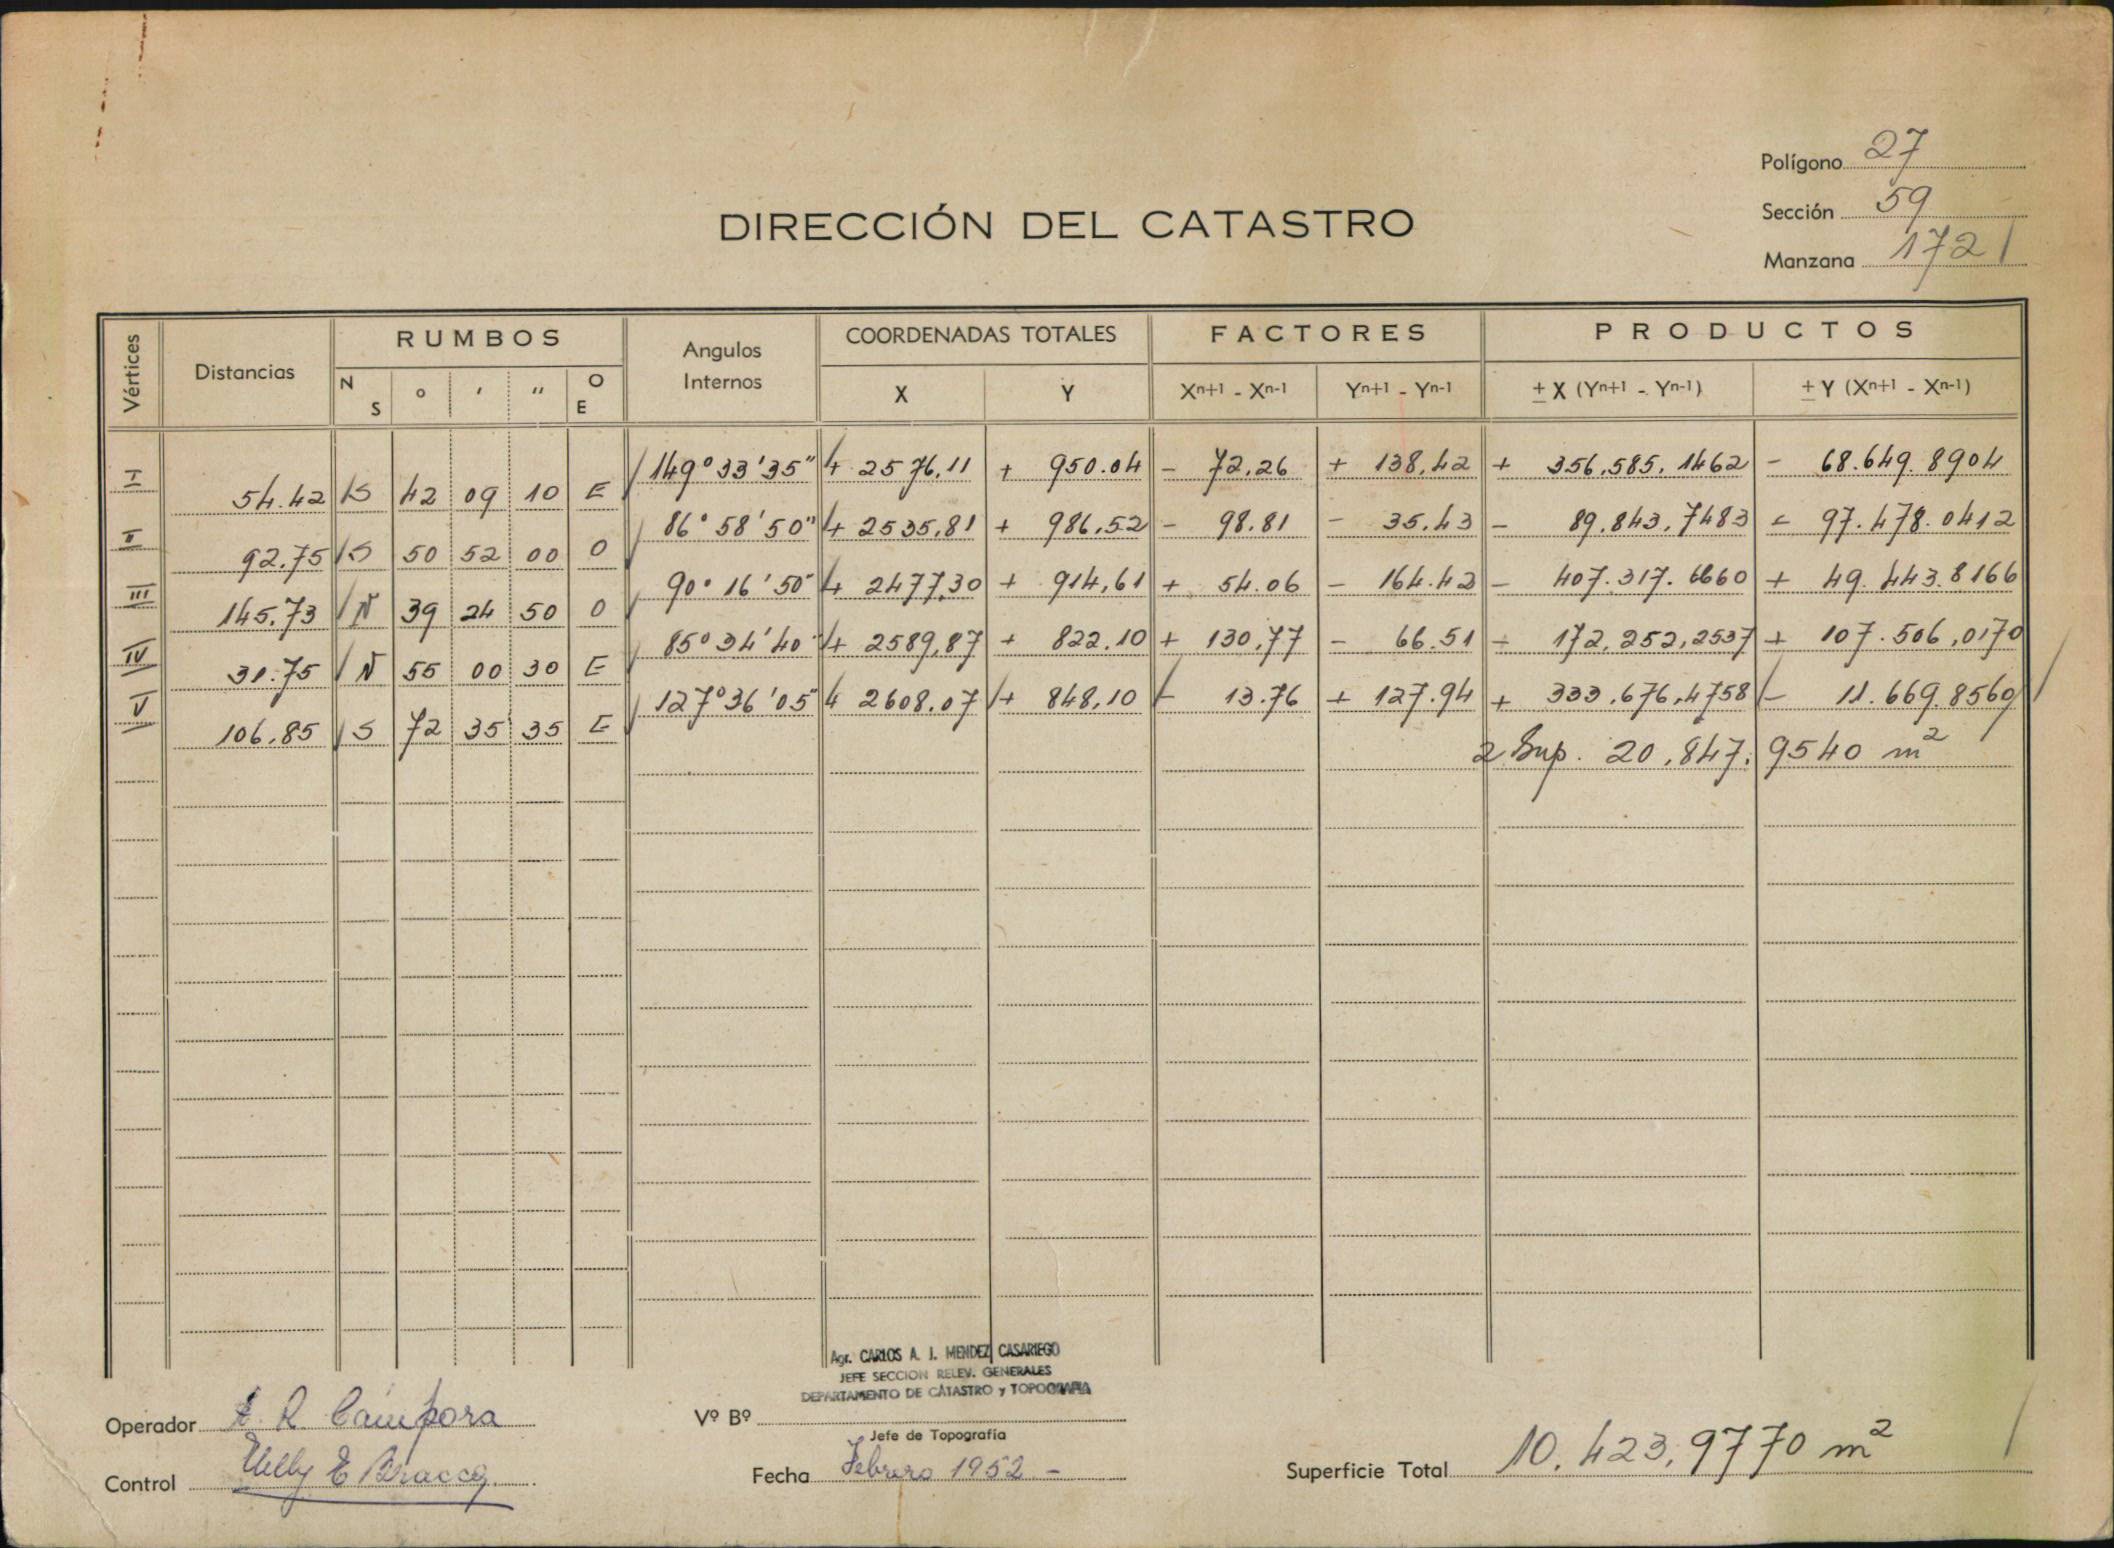 Polígono 27
Sección 59
Manzana 172
DIRECCIÓN DEL CATASTRO
Vértices Distancias RUMBOS Angulos Internos COORDENADAS TOTALES FACTORES PRODUCTOS
N S ° ' " O E X Y Xn+1 - Xn-1 Yn+1 - Yn-1 ± X (Yn+1 - Yn-1) ± Y (Xn+1 - Xn-1)
I 54.42 S 42 09 10 E 149° 33' 35" + 2576,11 + 950.04 - 72,26 + 138,42 + 356,585,1462 - 68.649.8904
II 92.75 S 50 52 00 O 86° 58' 50" + 2535,81 + 986,52 - 98.81 - 35.43 - 89.843,7483 - 97.478.0412
III 145.73 N 39 24 50 O 90° 16' 50" + 2477,30 + 914,61 + 54.06 - 164.42 - 407.317.6660 + 49.443.8166
IV 31.75 N 55 00 30 E 85° 34' 40" + 2589,87 + 822.10 + 130,77 - 66.51 - 172,252,2537 + 107.506,0170
V 106.85 S 72 35 35 E 127° 36' 05" + 2608.07 + 848,10 - 13.76 + 127.94 + 333.676,4758 - 11.669.8560
2 Sup. 20,847.9540 m²
Agr. CARLOS A. J. MENDEZ CASARIEGO
JEFE SECCION RELEV. GENERALES
DEPARTAMENTO DE CATASTRO y TOPOGRAFIA
Operador A. R. Cámpora
Vº Bº
Jefe de Topografía
Control Nelly E Bracco
Fecha Febrero 1952 -
Superficie Total 10.423,9770 m²